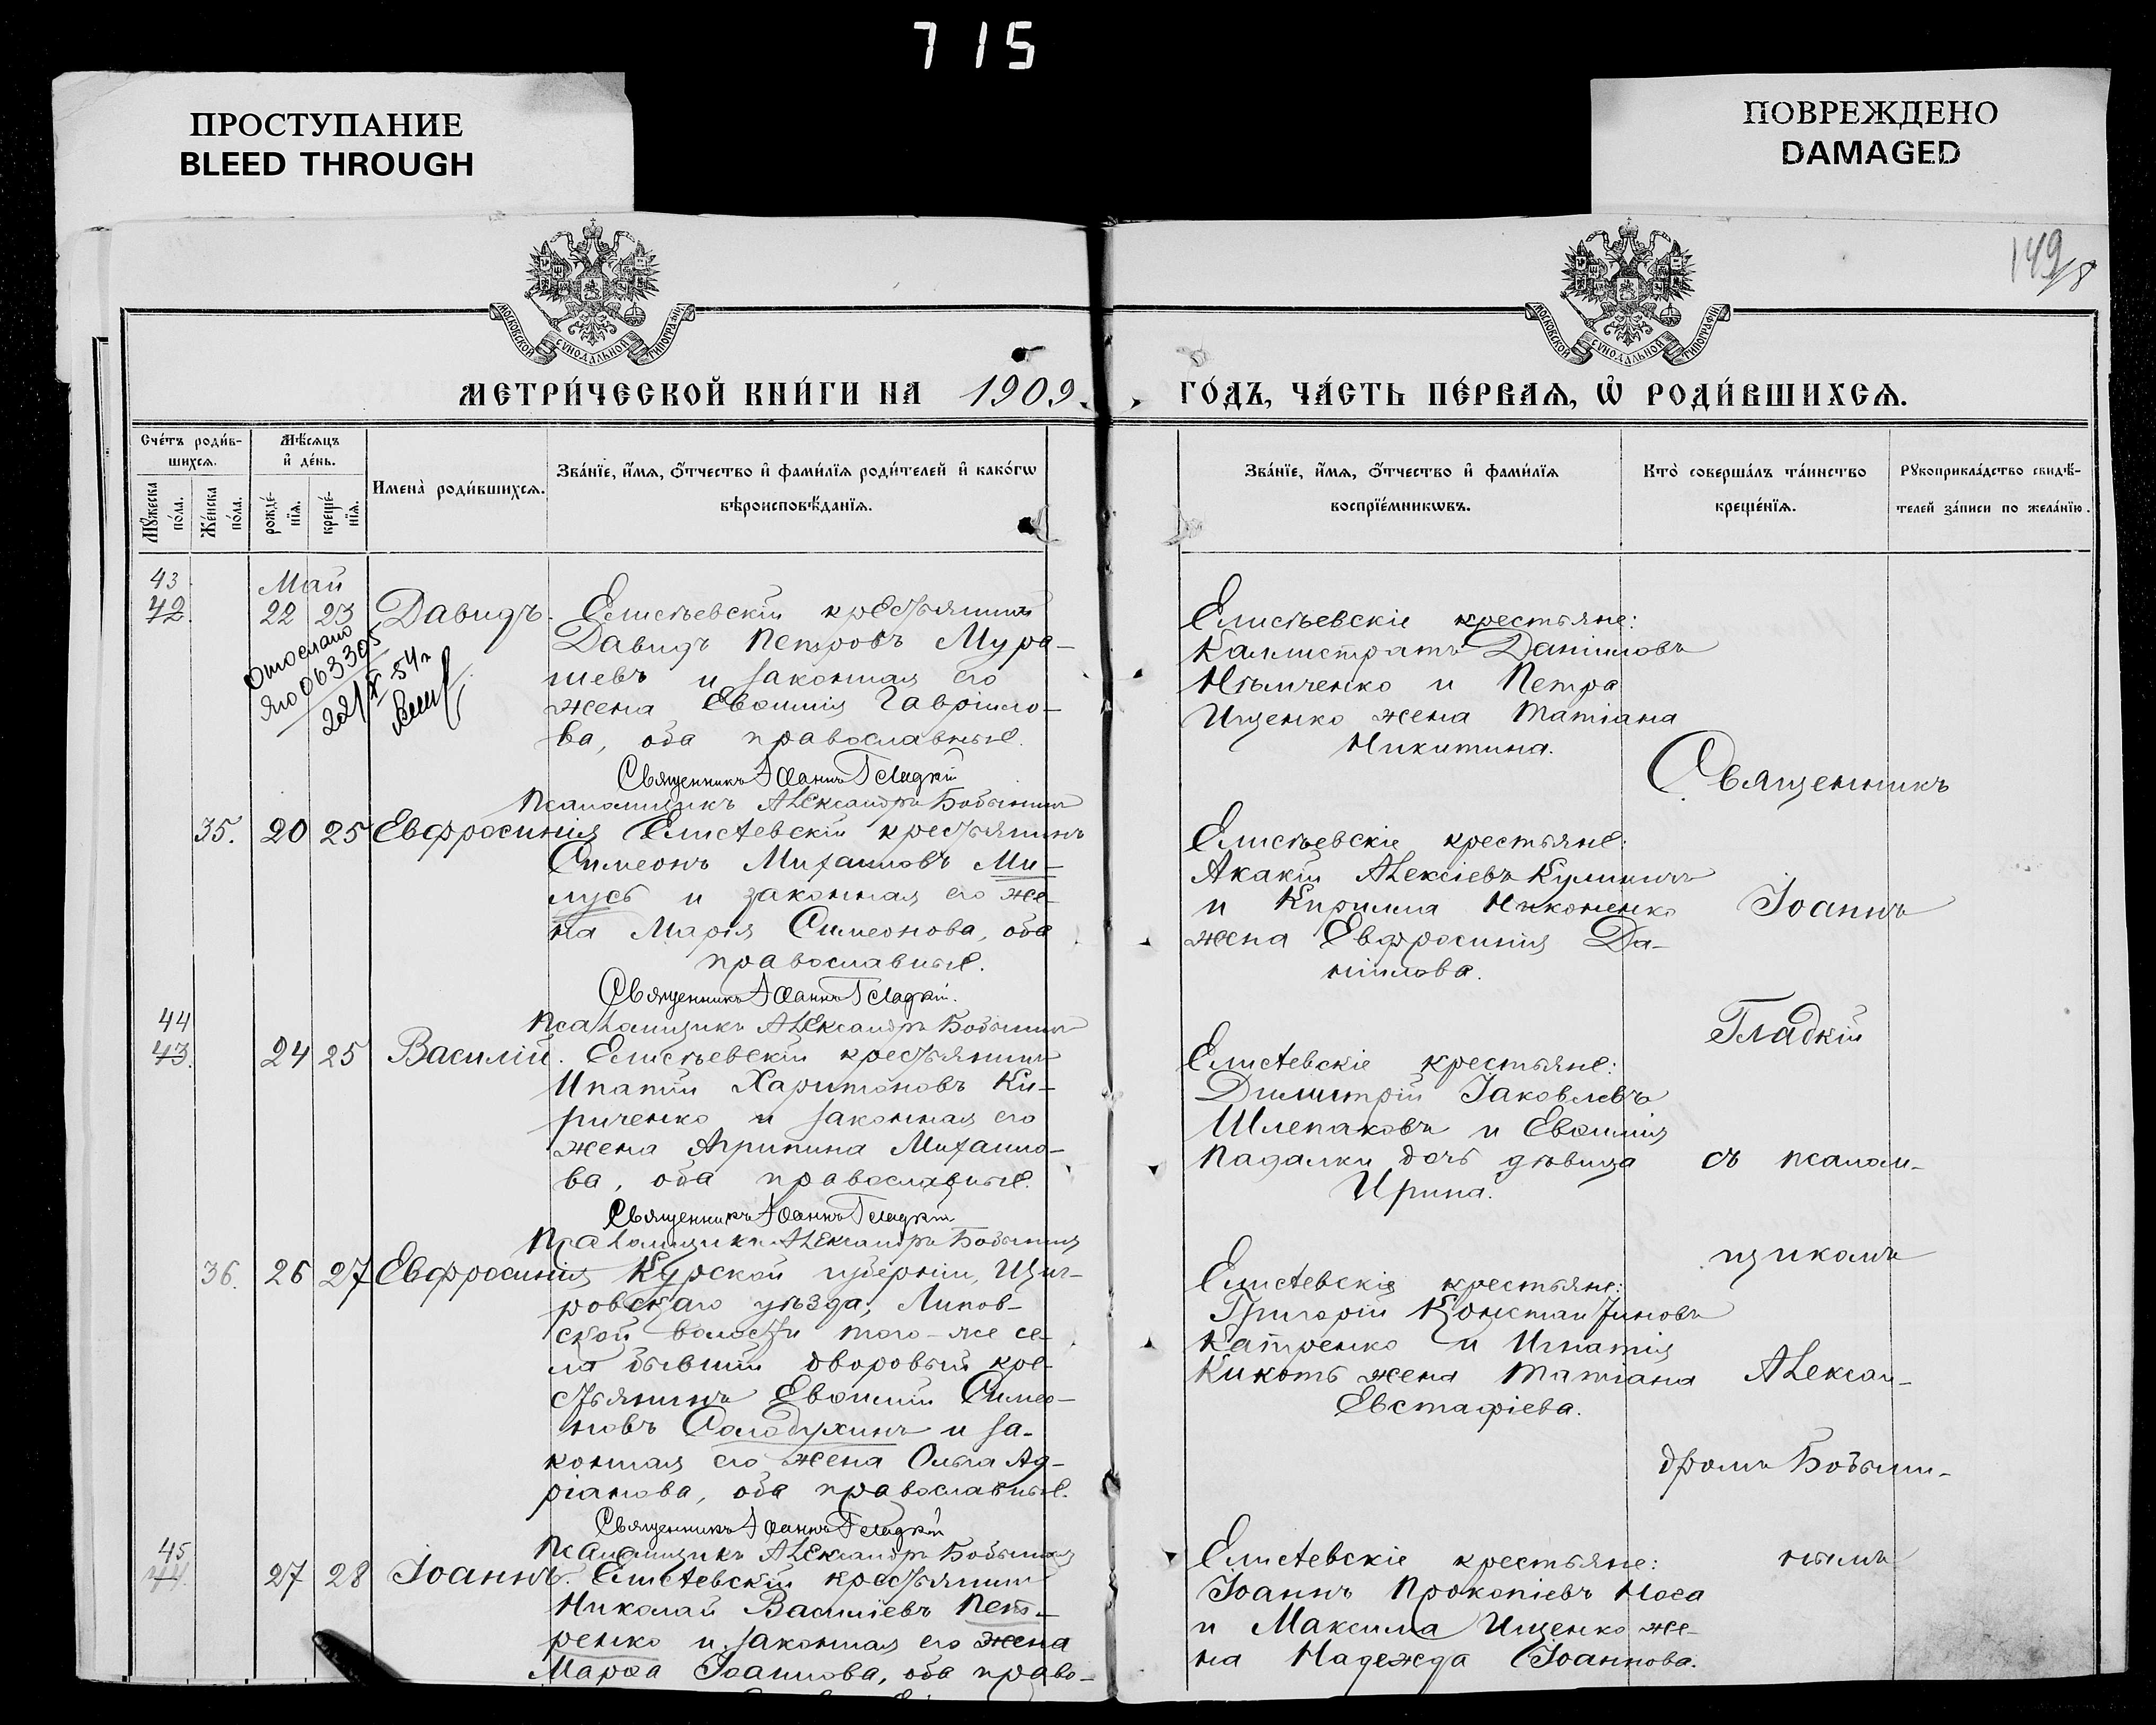 715
ПРОСТУПАНИЕ
BLEED THROUGH
ПОВРЕЖДЕНО
DAMAGED
149
МОСКОВСКОЙ СѴНОДАЛЬНОЙ ТИПОГРАФІИ
МОСКОВСКОЙ СѴНОДАЛЬНОЙ ТИПОГРАФІИ
МЕТРИ́ЧЕСКОЙ КНИ́ГИ НА 1909
ГО́ДЪ, ЧА́СТЬ ПЕ́РВАѦ, Ѡ҆ РОДИ́ВШИХСѦ.
Сче́тъ роди́в-
шихсѧ.
Мꙋ́жеска по́ла.
Же́нска по́ла.
Мѣ́сѧцъ
и҆ де́нь.
рожде́-
нїѧ.
креще́-
нїѧ.
Имена̀ роди́вшихсѧ.
Зва́нїе, и҆́мѧ, ѻ҆́тчество и҆ фами́лїѧ роди́телей и҆ како́гѡ
вѣроисповѣ́данїѧ.
Зва́нїе, и҆́мѧ, ѻ҆́тчество и҆ фами́лїѧ
воспрїе́мникѡвъ.
Кто̀ соверша́лъ та́инство
креще́нїѧ.
Рꙋкоприкла́дство свидѣ́-
телей за́писи по жела́нїю.
43
42.
Май
22 23
Давидъ.
Елисѣевскій крестьянинъ
Давидъ Петровъ Мура-
шевъ и законная его
жена Евѳимія Гавріило-
ва, оба православные.
Священникъ Іоаннъ Гладкій
Псаломщикъ Александръ Бобынинъ
Отослано
Яю 063395
22/X 54 г
Елисѣевскіе крестьяне:
Каллистратъ Даніиловъ
Нѣмченко и Петра
Ищенко жена Татіана
Никитина.
35. 20 25 Евфросинія
Елисѣевскій крестьянинъ
Симеонъ Михаиловъ Ми-
лусь и законная его же-
на Марія Симеонова, оба
православные.
Священникъ Іоаннъ Гладкій.
Псаломщикъ Александръ Бобынинъ
Елисѣевскіе крестьяне:
Акакій Алексіевъ Кулиничъ
и Кирилла Никоненко
жена Евфросинія Да-
ніилова.
44
43. 24 25 Василій.
Елисѣевскій крестьянинъ
Ипатій Харитоновъ Ки-
риченко и законная его
жена Агрипина Михаило-
ва, оба православные.
Священникъ Іоаннъ Гладкій
Псаломщикъ Александръ Бобынинъ
Елисѣевскіе крестьяне:
Димитрій Іаковлевъ
Шлепаковъ и Евѳимія
Падалки дочь дѣвица
Ирина.
36. 26 27 Евфросинія
Курской губерніи, Щиг-
ровскаго уѣзда, Липов-
ской волости того-же се-
ла бывшій дворовый кре-
стьянинъ Евѳимій Симео-
новъ Солодухинъ и за-
конная его жена Ольга Ад-
ріанова, оба православные.
Священникъ Іоаннъ Гладкій
Псаломщикъ Александръ Бобынинъ
Елисѣевскіе крестьяне:
Григорій Константиновъ
Катренко и Игнатія
Кикоть жена Татіана
Евстафіева.
45
44. 27 28 Іоаннъ.
Елисѣевскій крестьянинъ
Николай Василіевъ Пет-
ренко и законная его жена
Марѳа Іоаннова, оба право-
Елисѣевскіе крестьяне:
Іоаннъ Прокопіевъ Носа
и Максима Ищенко же-
на Надежда Іоаннова.
Священникъ
Іоаннъ
Гладкій
съ псалом-
щикомъ
Алексан-
дромъ Бобыни-
нымъ